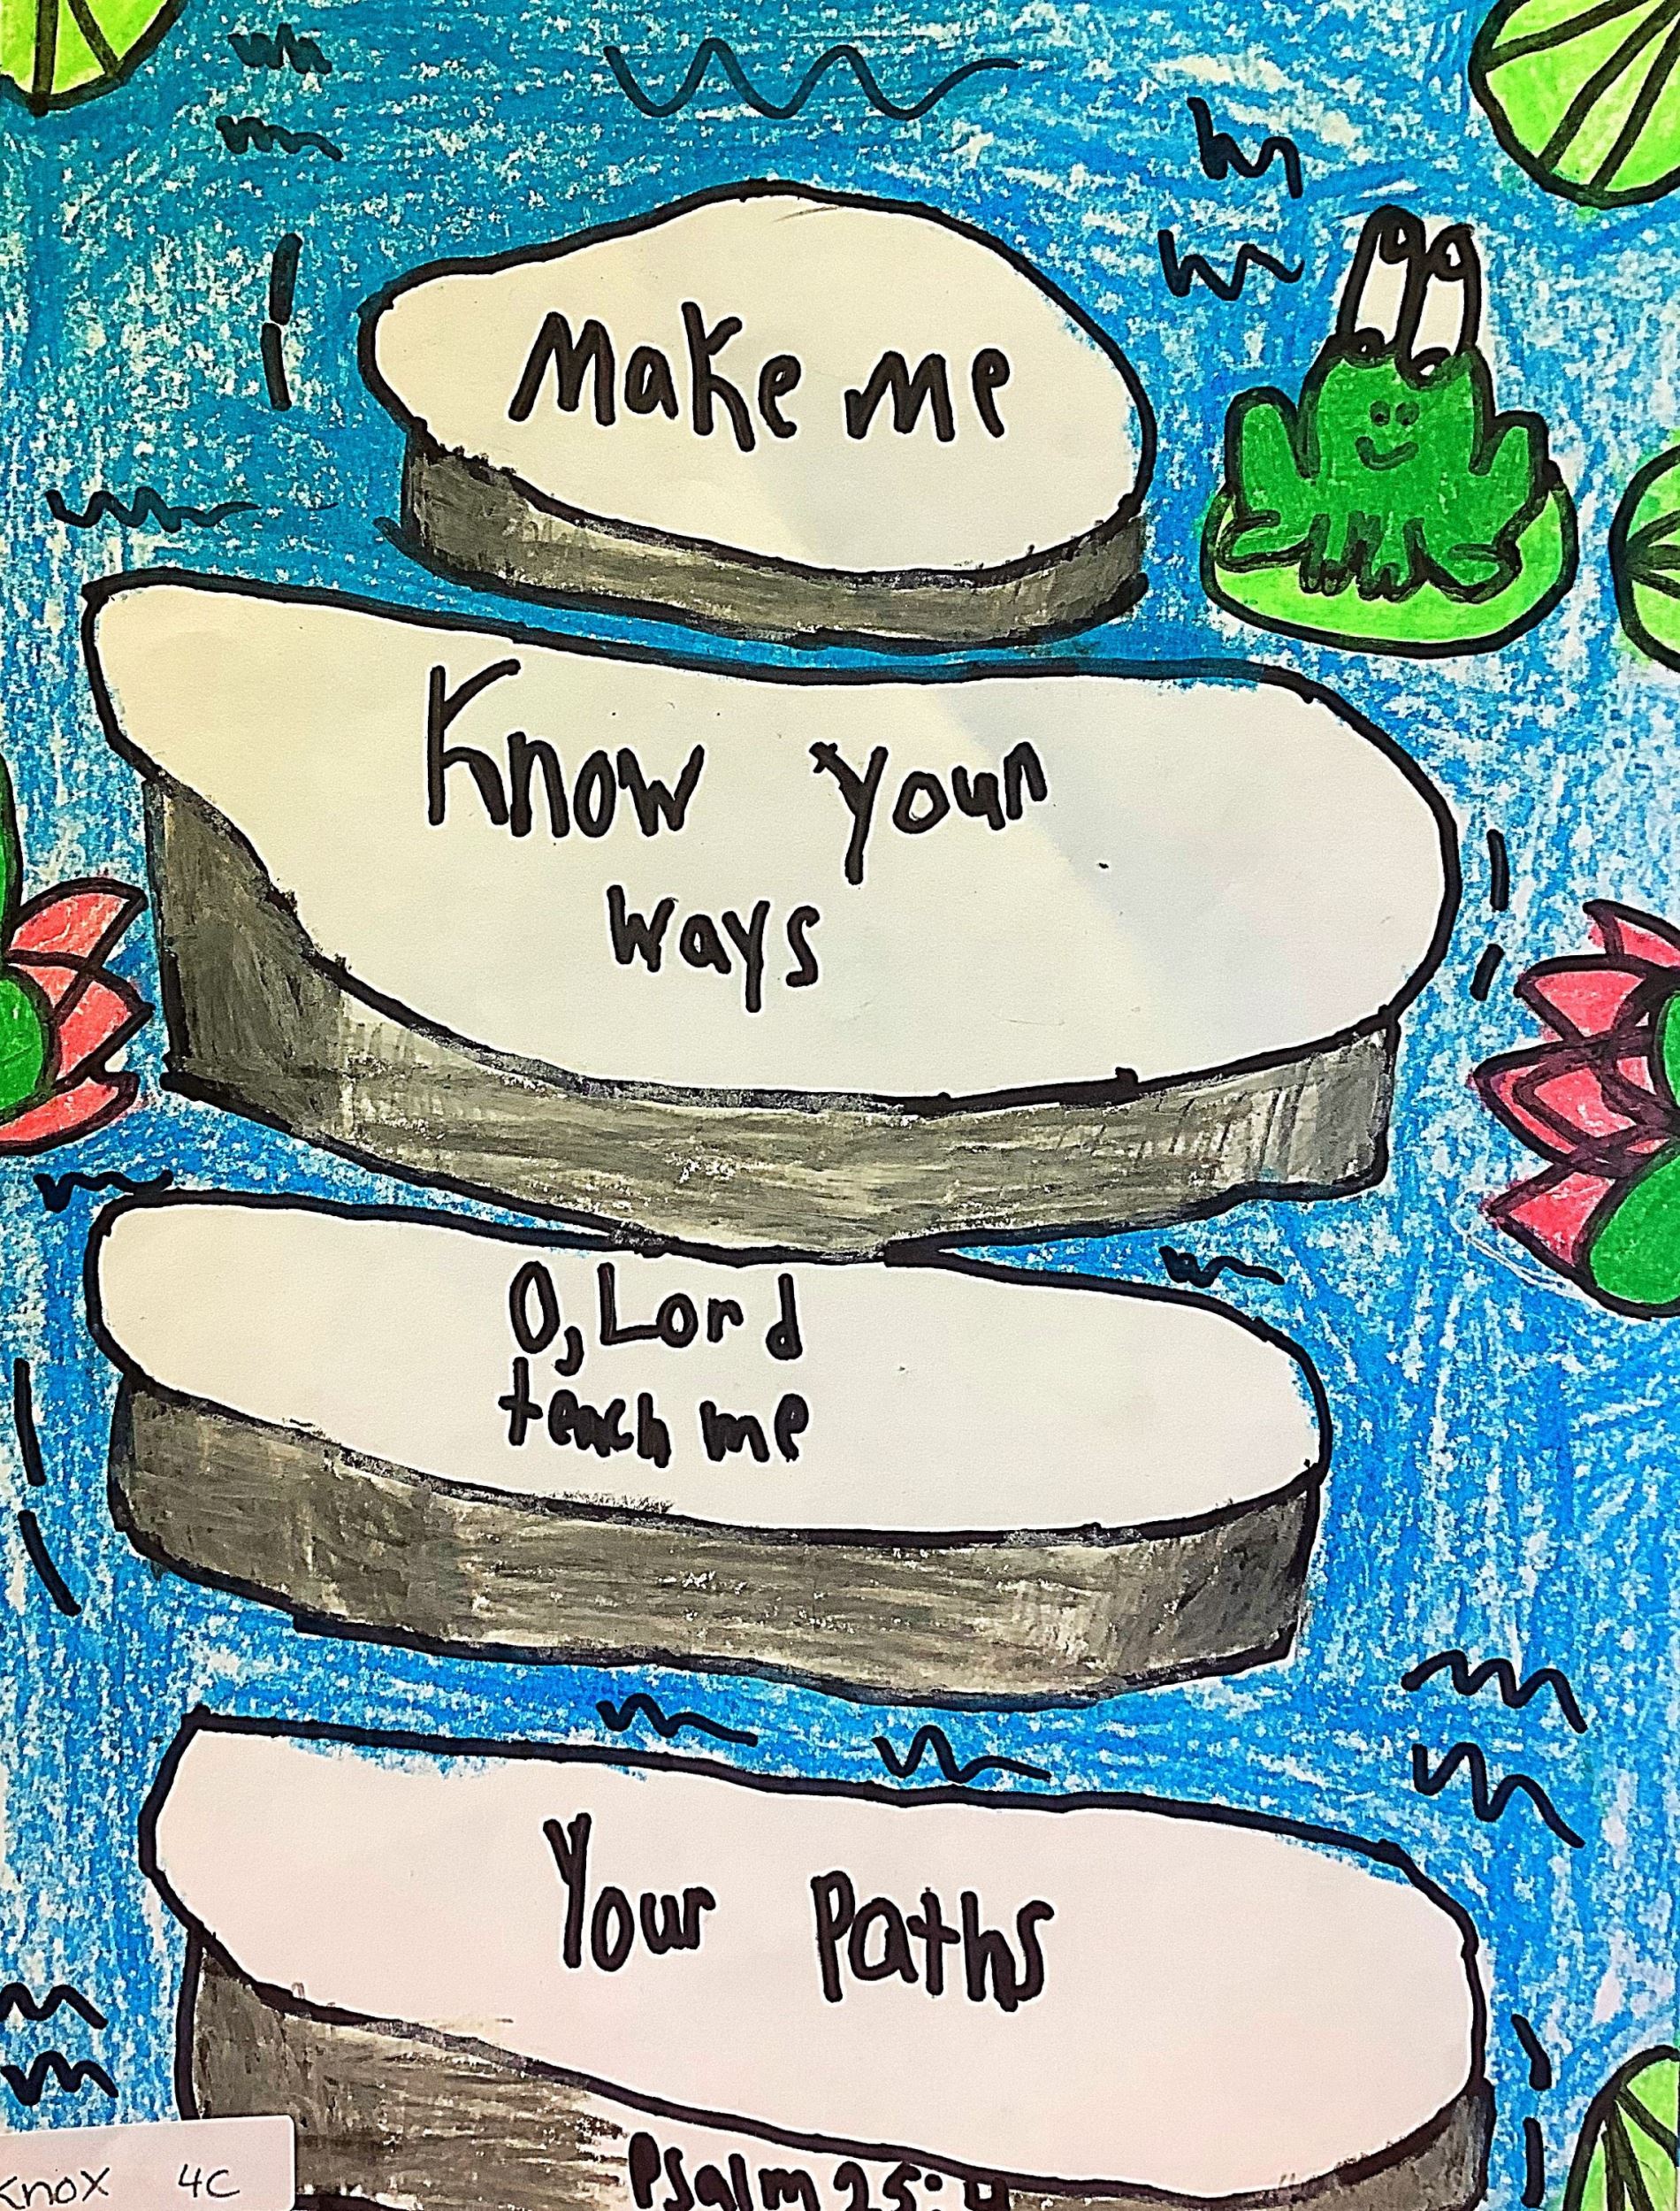 Make me
Know your
ways
O, Lord
teach me
Your Paths
Psalm 25:4
Knox 4C